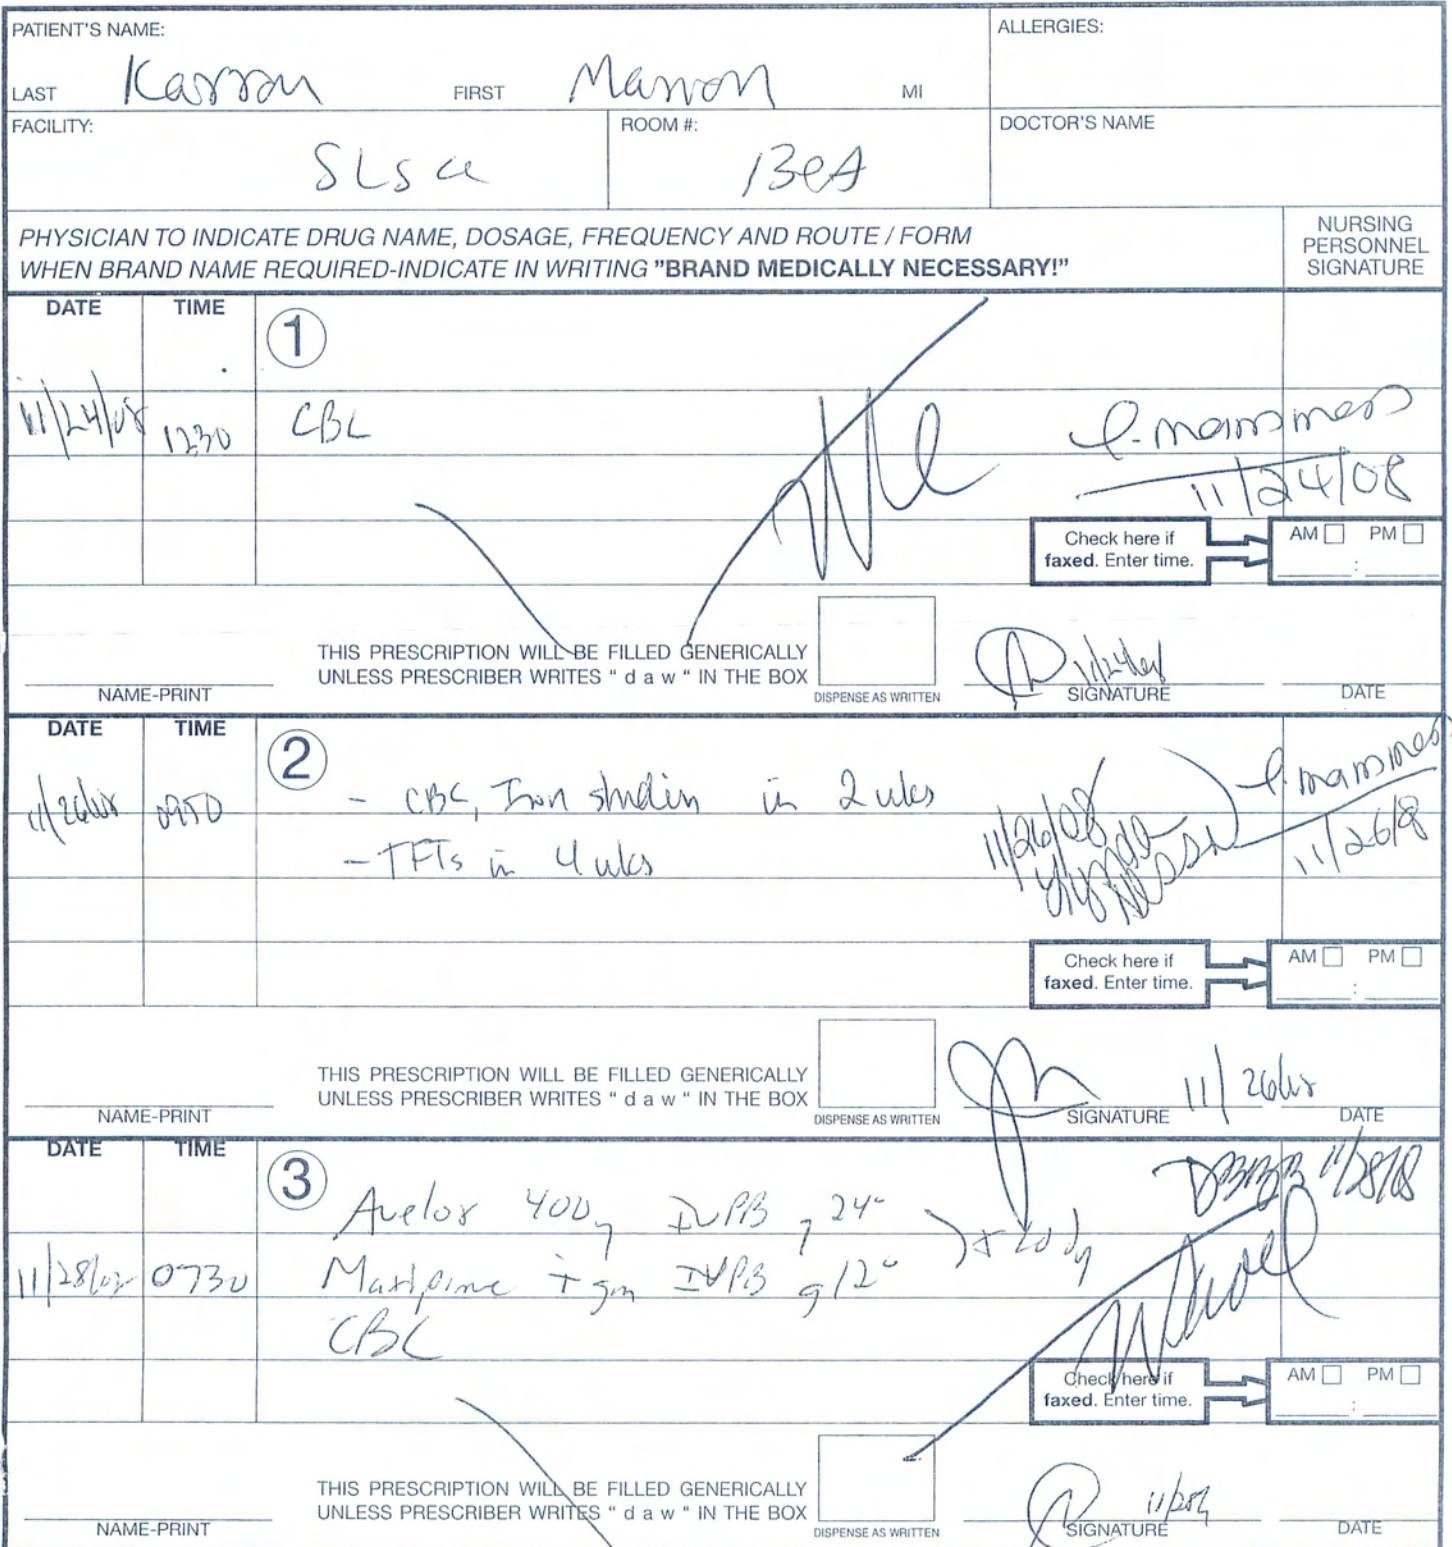 PATIENT'S NAME:
ALLERGIES:
LAST FIRST MI
FACILITY:
ROOM #:
DOCTOR'S NAME
PHYSICIAN TO INDICATE DRUG NAME, DOSAGE, FREQUENCY AND ROUTE / FORM
WHEN BRAND NAME REQUIRED-INDICATE IN WRITING "BRAND MEDICALLY NECESSARY!"
NURSING
PERSONNEL
SIGNATURE
DATE TIME
1
11/24/08 1230 CBC
11/24/08
Check here if
faxed. Enter time.
AM PM
:
THIS PRESCRIPTION WILL BE FILLED GENERICALLY
UNLESS PRESCRIBER WRITES " d a w " IN THE BOX
NAME-PRINT
DISPENSE AS WRITTEN
SIGNATURE
DATE
DATE TIME
2
- CBC, Iron studies in 2 wks
- TFTs in 4 wks
11/26/08
11/26/8
Check here if
faxed. Enter time.
AM PM
:
THIS PRESCRIPTION WILL BE FILLED GENERICALLY
UNLESS PRESCRIBER WRITES " d a w " IN THE BOX
NAME-PRINT
DISPENSE AS WRITTEN
SIGNATURE
DATE
DATE TIME
3
11/28/08
Avelox 400 IVPB q 24°
0730 Maxipime gm IVPB q 12°
CBC
Check here if
faxed. Enter time.
AM PM
:
THIS PRESCRIPTION WILL BE FILLED GENERICALLY
UNLESS PRESCRIBER WRITES " d a w " IN THE BOX
NAME-PRINT
DISPENSE AS WRITTEN
SIGNATURE
DATE